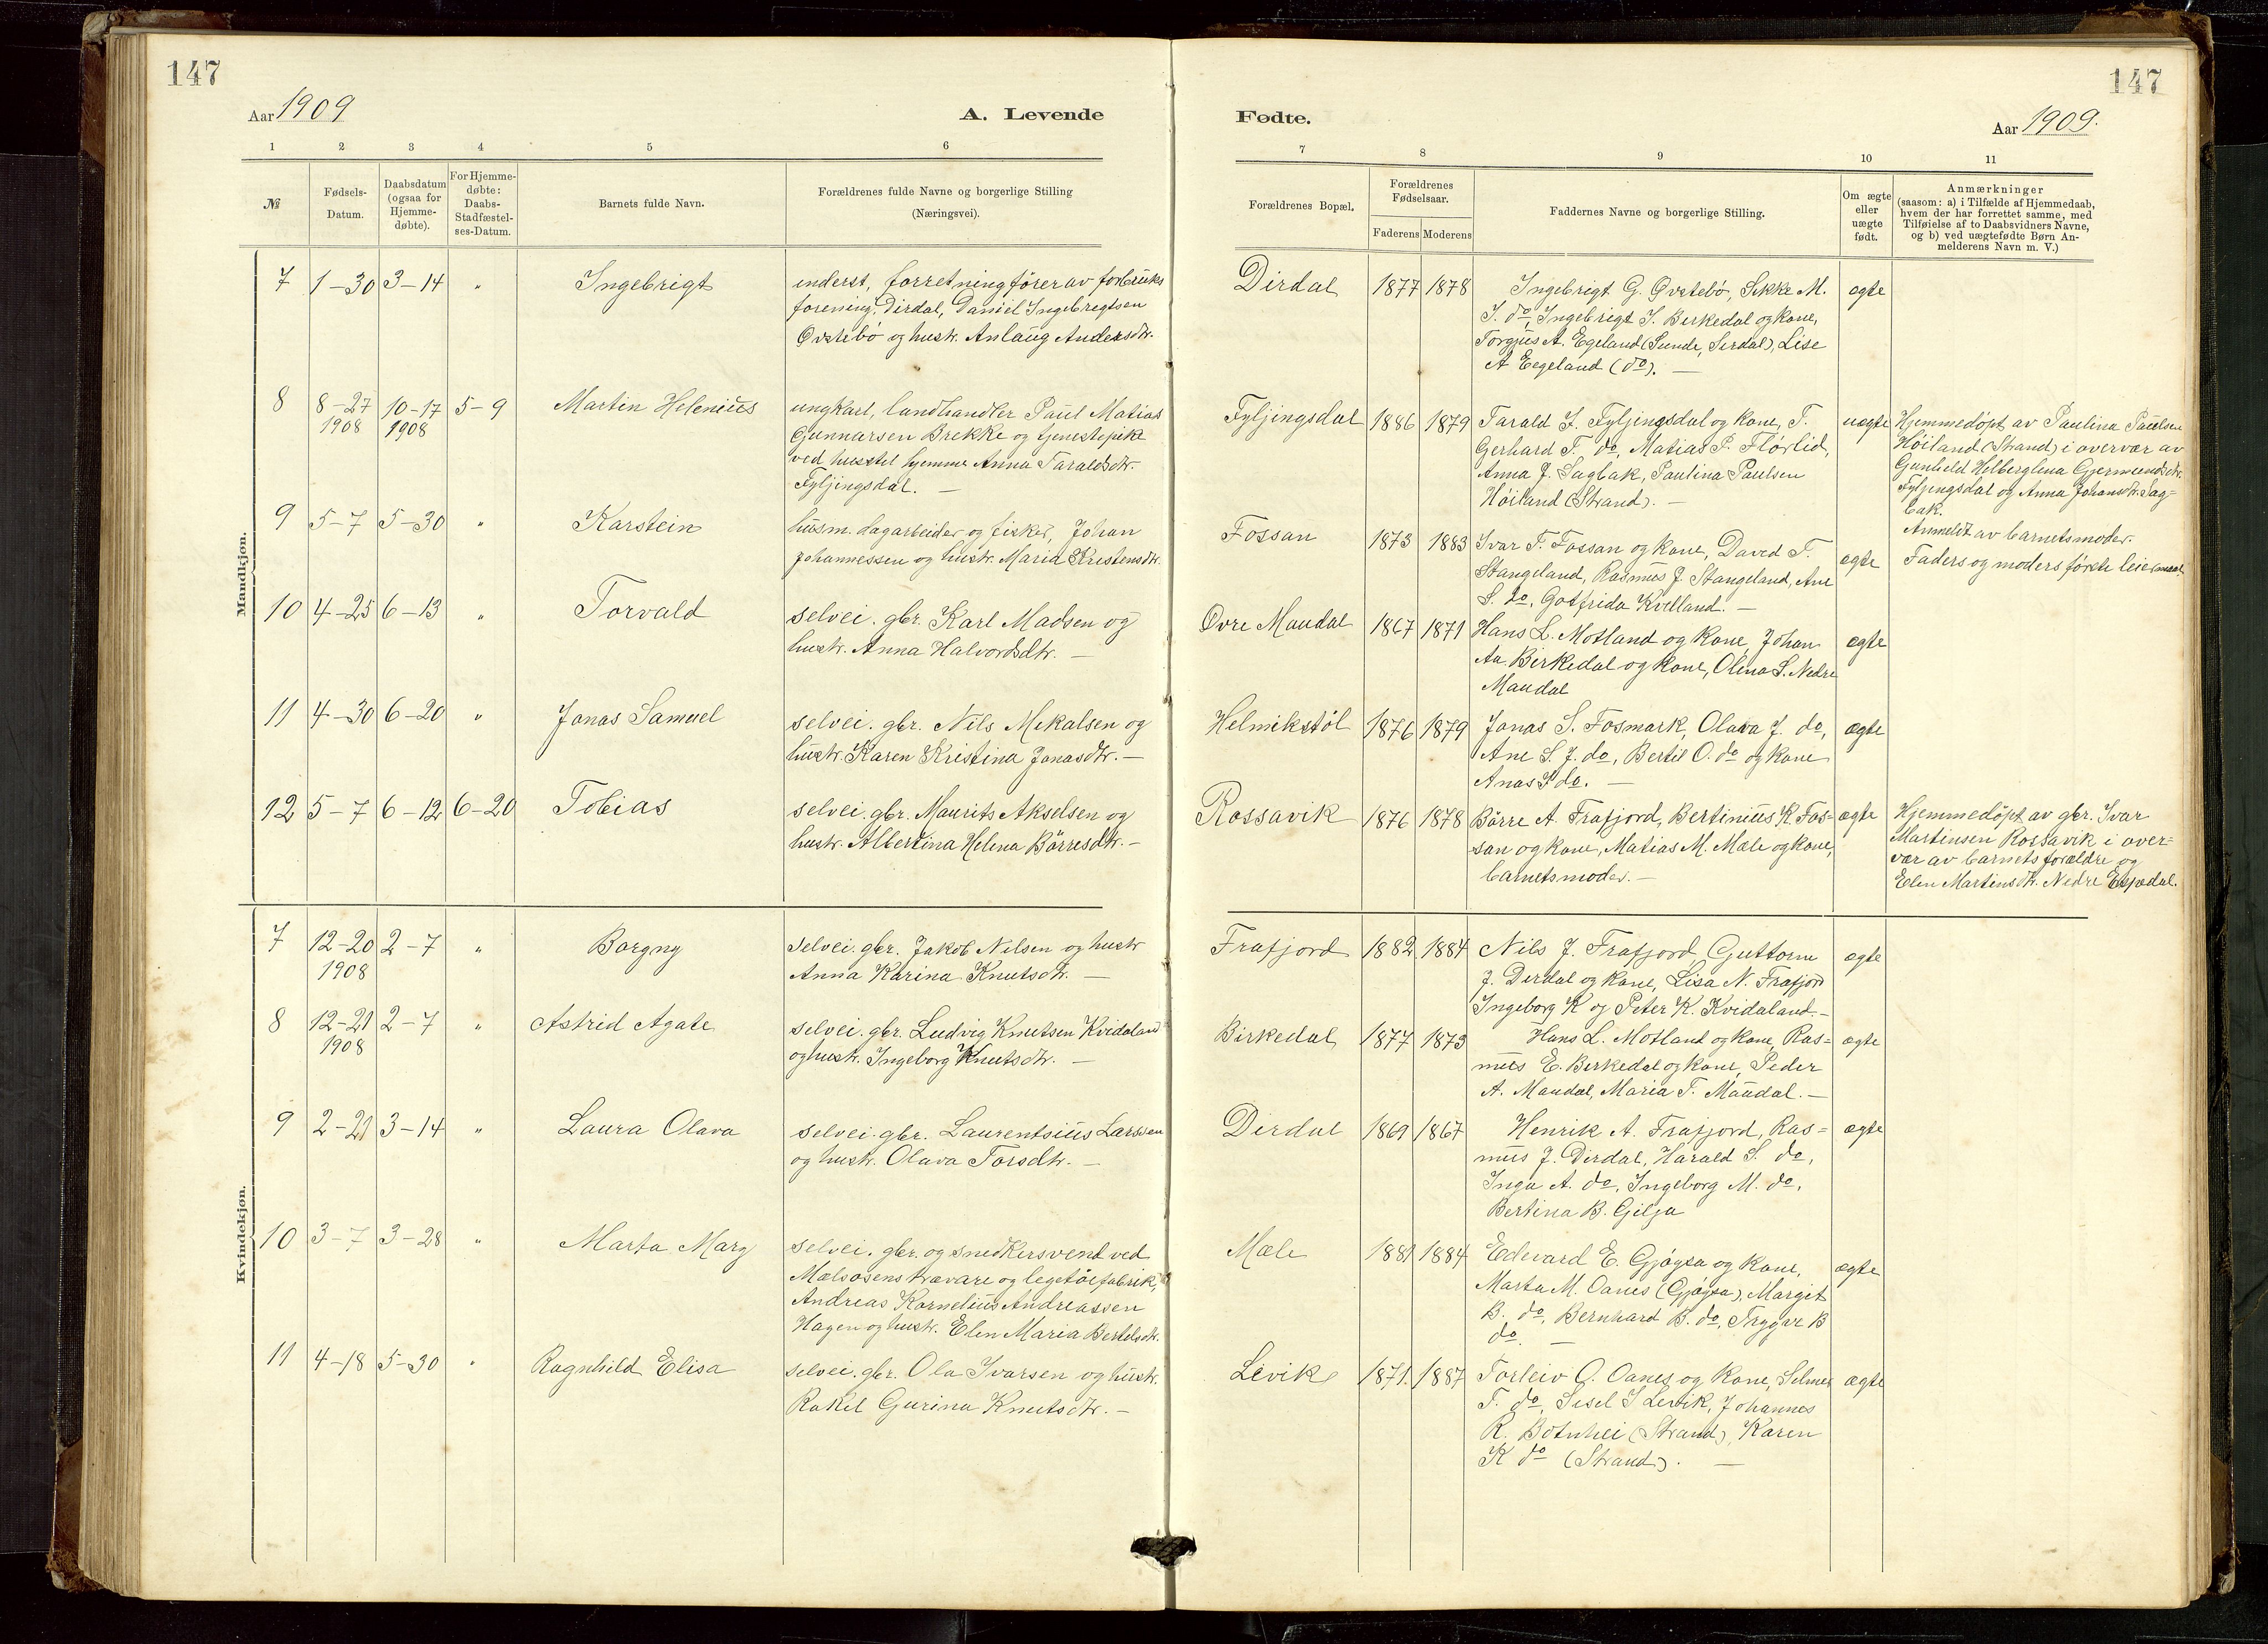 147
147
Aar 1909
A. Levende
Fødte.
Aar 1909.
1 2 3 4 5 6
7 8 9 10 11
№
Fødsels-
Datum.
Daabsdatum
(ogsaa for
Hjemme-
døbte).
For Hjemme-
døbte:
Daabs-
Stadfæstel-
ses-Datum.
Barnets fulde Navn.
Forældrenes fulde Navne og borgerlige Stilling
(Næringsvei).
Forældrenes Bopæl.
Forældrenes
Fødselsaar.
Faderens Moderens
Faddernes Navne og borgerlige Stilling.
Om ægte
eller
uægte
født.
Anmærkninger
(saasom: a) i Tilfælde af Hjemmedaab,
hvem der har forrettet samme, med
Tilføielse af to Daabsvidners Navne,
og b) ved uægtefødte Børn An-
melderens Navn m. V.)
Mandkjøn.
7 1-30 3-14 " Ingebrigt
inderst, forretningfører av forbruks
forening, Dirdal, Daniel Ingebrigtsen
Øvstebö og hustr. Anlaug Andersdtr.
Dirdal 1877 1878
Ingebrigt G. Øvstebö, Sikke M.
I. do, Ingebrigt I. Birkedal og kone,
Torgius A. Egeland (Sunde, Sirdal), Lise
A Eegeland (do). —
ægte
8 8-27 10-17 5-9 Martin Helenius
1908 1908
ungkarl, landhandler Paul Matias
Gunnarsen Brekke og tjenestepike
ved husstel hjemme Anna Taraldsdtr.
Fyljingsdal. —
Fyljingsdal 1886 1879
Tarald J. Fyljingsdal og kone, T.
Gerhard T. do, Matias P. Flörlid,
Anna J. Sagbak, Paulina Paulsen
Höiland (Strand). —
uægte
Hjemmedöpt av Paulina Paulsen
Höiland (Strand) i overvær av
Gunhild Helberglena Gjermundsdtr.
Fyljingsdal og Anna Johansdtr. Sag-
bak.
Anmeldt av barnets moder.
Faders og moders første leiermaal.
9 5-7 5-30 " Karstein
husm. dagarbeider og fisker, Johan
Johannessen og hustr. Maria Kristensdtr.
Fossan 1873 1883
Ivar T. Fossan og kone, David T.
Stangeland, Rasmus J. Stangeland, Ane
S. do, Gotfrida Kvelland. —
ægte
10 4-25 6-13 " Torvald
selvei. gbr. Karl Madsen og
hustr. Anna Halvordsdtr. —
Øvre Maudal 1867 1871
Hans L. Motland og kone, Johan
Aa. Birkedal og kone, Olena S. Nedre
Maudal
ægte
11 4-30 6-20 " Jonas Samuel
selvei. gbr. Nils Mikalsen og
hustr. Karen Kristina Jonasdtr. —
Helmikstöl 1876 1879
Jonas S. Fosmark, Olava J. do,
Ane S. J. do, Bertil O. do og kone
Anas S do. —
ægte
12 5-7 6-12 6-20 Tobias
selvei. gbr. Maurits Akselsen og
hustr. Albertina Helena Börresdtr. —
Rossavik 1876 1878
Börre A. Frafjord, Bertinius K. Fos-
san og kone, Matias M. Mæle og kone,
barnets moder. —
ægte
Hjemmedöpt av gbr. Ivar
Martinsen Rossavik i over-
vær av barnets forældre og
Elen Martinsdtr. Nedre Espedal.
Kvindekjøn.
7 12-20 2-7 " Borgny
1908
selvei. gbr. Jakob Nilsen og hustr
Anna Karina Knutsdtr. —
Frafjord 1882 1884
Nils J. Frafjord, Guttorm
J. Dirdal og kone, Lisa N. Frafjord
Ingeborg K og Peter K. Kvidaland. —
ægte
8 12-21 2-7 " Astrid Agate
1908
selvei. gbr. Ludvig Knutsen Kvidaland
og hustr. Ingeborg Knutsdtr. —
Birkedal 1877 1873
Hans L. Motland og kone, Ras-
mus E. Birkedal og kone, Peder
A. Maudal, Maria T. Maudal. —
ægte
9 2-21 3-14 " Laura Olava
selvei. gbr. Laurentsius Larssen
og hustr. Olava Torsdtr. —
Dirdal 1869 1867
Henrik A. Frafjord, Ras-
mus J. Dirdal, Harald S. do,
Inga A. do, Ingeborg M. do,
Bertina B. Gilja
ægte
10 3-7 3-28 " Marta Marg
selvei. gbr. og snedkersvend ved
Mælsosens trævare og legetöifabrik,
Andreas Kornelius Andreassen
Hagen og hustr. Elen Maria Bertelsdtr.
Mæle 1881 1884
Edevard E. Gjøysa og kone,
Marta M. Oanes (Gjøysa), Margit
B. do, Bernhard B. do, Trygve B
do. —
ægte
11 4-18 5-30 " Ragnhild Elisa
selvei. gbr. Ola Ivarsen og hustr.
Rakel Gurina Knutsdtr. —
Levik 1871. 1887
Torleiv O. Oanes og kone, Selmer
T. do, Sisel I Levik, Johannes
R. Botnhei (Strand), Karen
K do (Strand). —
ægte